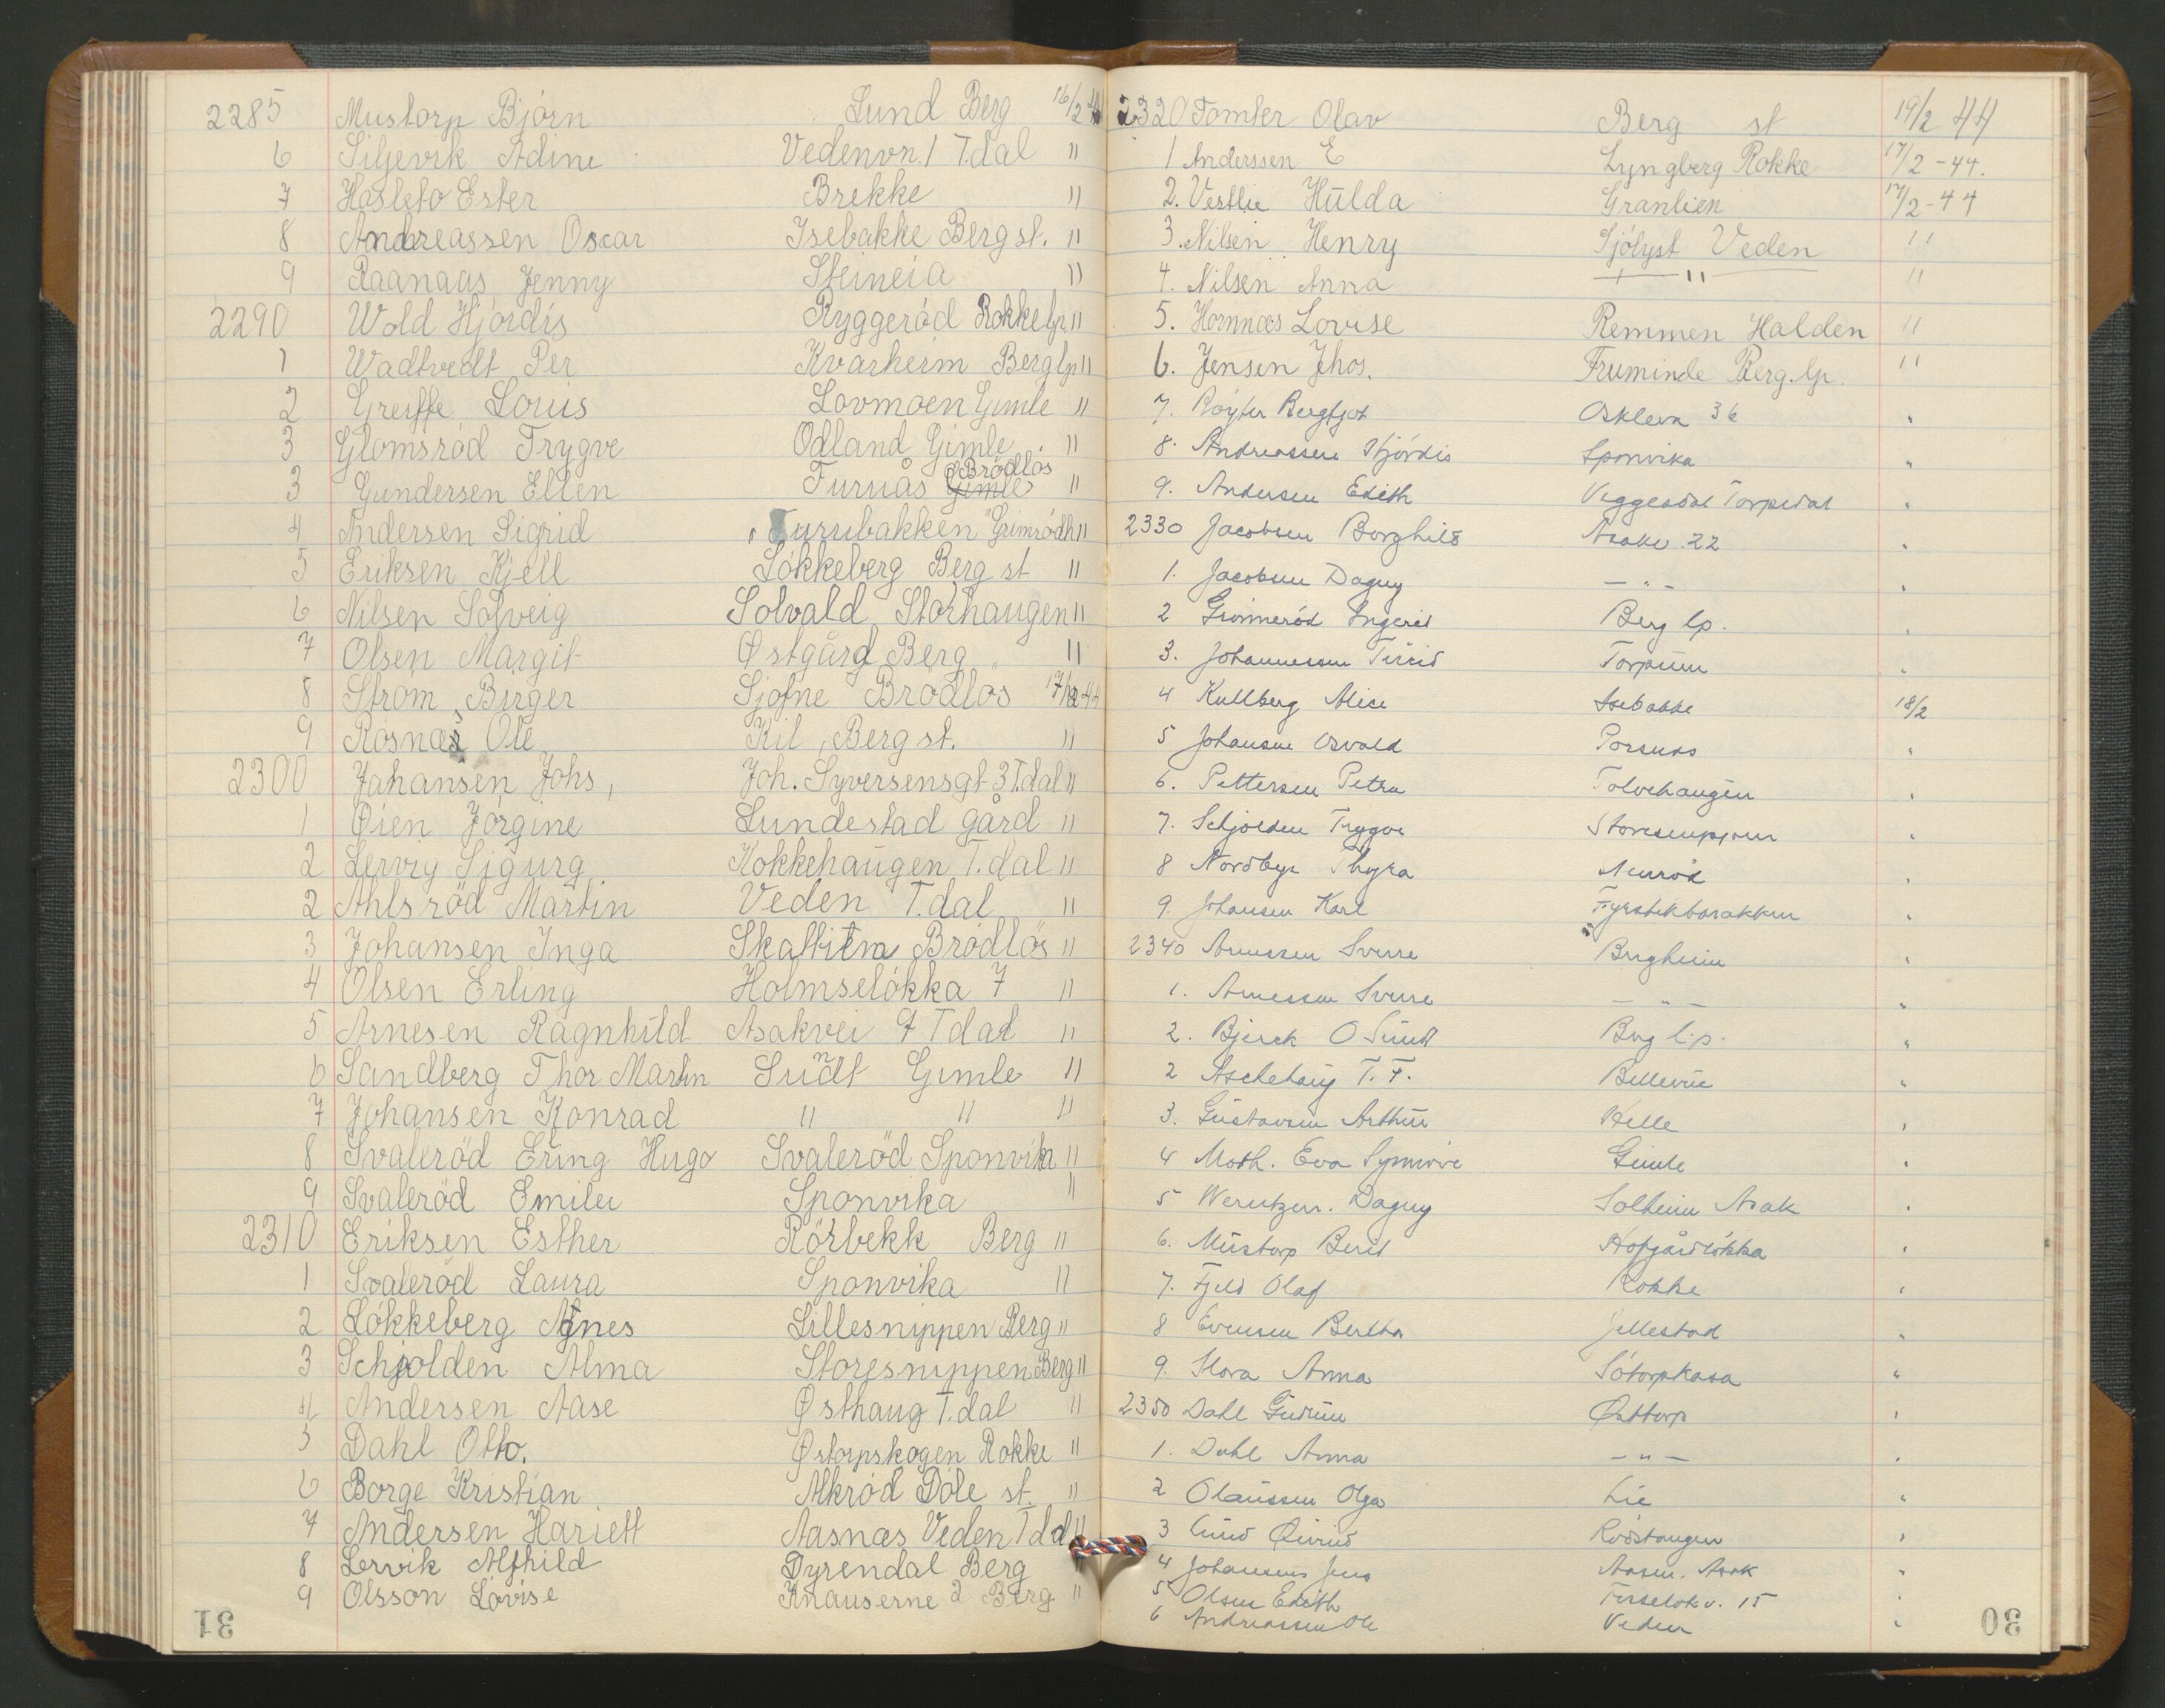 2285 Mustorp Bjørn Lund Berg 16/2 44
6 Siljevik Adine Vedenvn. 1 T.dal "
7 Hasleto Ester Brekke "
8 Andreassen Oscar Isebakke Berg st. "
9 Raanaas Jenny Steineia "
2290 Wold Hjördis Ryggeröd Rokke lp "
1 Wadtvedt Per Kvarheim Berg lp "
2 Greiffe Louis Lovmoen Gimle "
3 Glomsröd Trygve Ödland Gimle "
3 Gundersen Ellen Furnås Brödlös "
4 Andersen Sigrid "Furubakken" Grimsrödh "
5 Eriksen Kjell Lökkeberg Berg st "
6 Nilsen Solveig Solvald Storhaugen "
7 Olsen Margit Østgård Berg "
8 Ström Birger Sjøfne Brödlös 17/2 44
9 Rosnæs Ole Kil, Berg st. "
2300 Jahansen Johs, Joh. Syversensgt 3 T.dal "
1 Øien Jörgine Lundestad gård "
2 Lervig Sigurg Kokkehaugen T.dal "
2 Ahlsröd Martin Veden T.dal "
3 Johansen Inga Skattitna Brödlös "
4 Olsen Erling Holmselökka 7 "
5 Arnesen Ragnhild Asakvei 9 Tdal "
6 Sandberg Thor Martin Sundt Gimle "
7 Johansen Konrad " " "
8 Svaleröd Ering Hugo Svaleröd Sponvika "
9 Svaleröd Emilei Sponvika "
2310 Eriksen Esther Rörbekk Berg "
1 Svaleröd Laura Sponvika "
2 Lökkeberg Agnes Lillesnippen Berg "
3 Schjolden Alma Storesnippen Berg "
4 Andersen Aase Østhaug T.dal "
5 Dahl Otto. Østorpskogen Rokke "
6 Borge Kristian Alkröd Döle st. "
7 Andersen Hariett Aasnæs Veden Tdal "
8 Lervik Alfhild Dyrendal Berg
9 Olsson Lovise Knauserne 2 Berg "
31
2320 Tomter Olav Berg st 19/2 44
1 Anderssen E Lyngberg Rokke 17/2-44.
2. Vestlie Hulda Granlien 17/2-44
3. Nilsen Henry Sjölyst Veden "
4. Nilsen Anna — " — "
5. Hornnæs Lovise Remmen Halden "
6. Jensen Jhos. Fruminde Berg. lp. "
7. Röyter Bergljot Oskleva 36 "
8. Andreassen Hjördis Sponvika "
9. Andersen Edith Torpedal "
2330 Jacobsen Borghild Asakv. 22 "
1. Jacobsen Dagny — " — "
2 Grönneröd Ingerid Berg lp. "
3. Johannessen Torpum "
4 Kullberg Alice Isebakke 18/2
5 Johansen Osvald Porsnes "
6. Pettersen Petra Tolvehaugen "
7. Schjolden Trygve Storesnippen "
8 Nordbye Thyra "
9. Johansen Karl Fyrstikbarakken "
2340 Arnessen Sverre Bergheim "
1. Arnessen Sverre — " — "
2. Bjerck O Sundt Berg l.p. "
2 Aschehaug T. F. Bellevue "
3. Gustavsen Arthur Helle "
4 Moth. Eva Synnöve Gimle "
5 Dagny Solheim Asak "
6. Mustorp Berit Hofgårdlökka "
7. Fjeld Olaf Rokke "
8 Evensen Bertha Jellestad "
9. Hova Anna Sötorpkasa "
2350 Dahl Gudrun Østtorp "
1. Dahl Anna — " — "
2 Olaussen Olga Lie "
3 Lund Öivind Rödstangen "
4 Johansen Jens Aasen. Asak "
5 Olsen Edith 15 "
6 Andreassen Ole Veden "
30